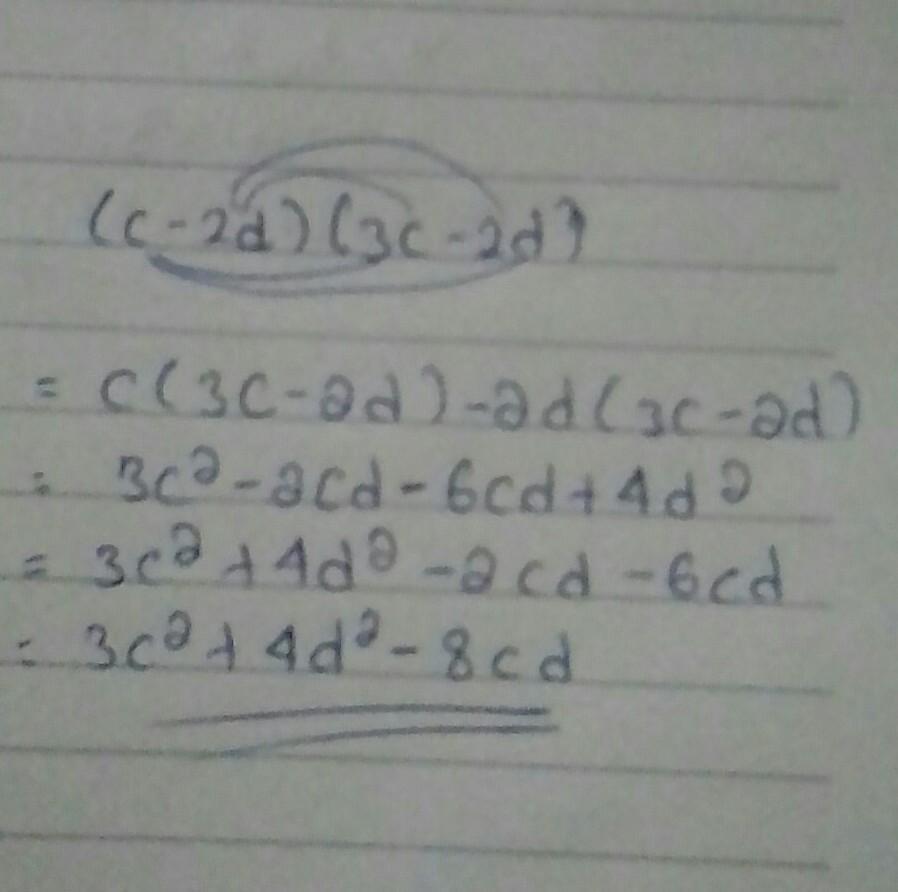 (c-2d)(3c-2d)
= c(3c-2d)-2d(3c-2d)
= 3c²-2cd-6cd+4d²
= 3c²+4d²-2cd-6cd
= 3c²+4d²-8cd